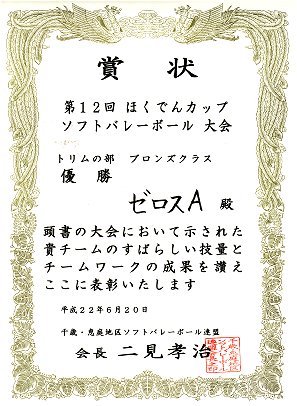 賞状
第12回 ほくでんカップ
ソフトバレーボール 大会
トリムの部 ブロンズクラス
優勝
ゼロスA 殿
頭書の大会において示された
貴チームのすばらしい技量と
チームワークの成果を讃え
ここに表彰いたします
平成22年6月20日
千歳・恵庭地区ソフトバレーボール連盟
会長 二見孝治